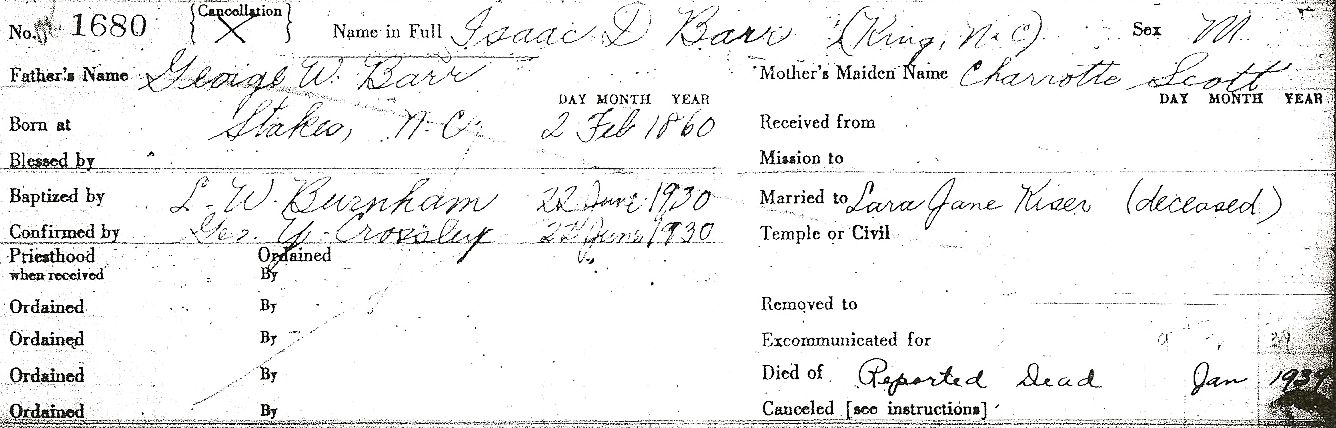 No. 1680 {Cancellation} X Name in Full Isaac D Barr (King, N.C) Sex M
Father's Name George W. Barr Mother's Maiden Name Charrotte Scott
DAY MONTH YEAR DAY MONTH YEAR
Born at Stakes, N.C. 2 Feb 1860 Received from
Blessed by Mission to
Baptized by L. W. Burnham 22 June 1930 Married to Lara Jane Kiser (deceased)
Confirmed by Geo. Y. Crossley 22 June 1930 Temple or Civil
Priesthood Ordained
when received By
Ordained By Removed to
Ordained By Excommunicated for
Ordained By Died of Reported Dead Jan 1939
Ordained By Canceled [see instructions]